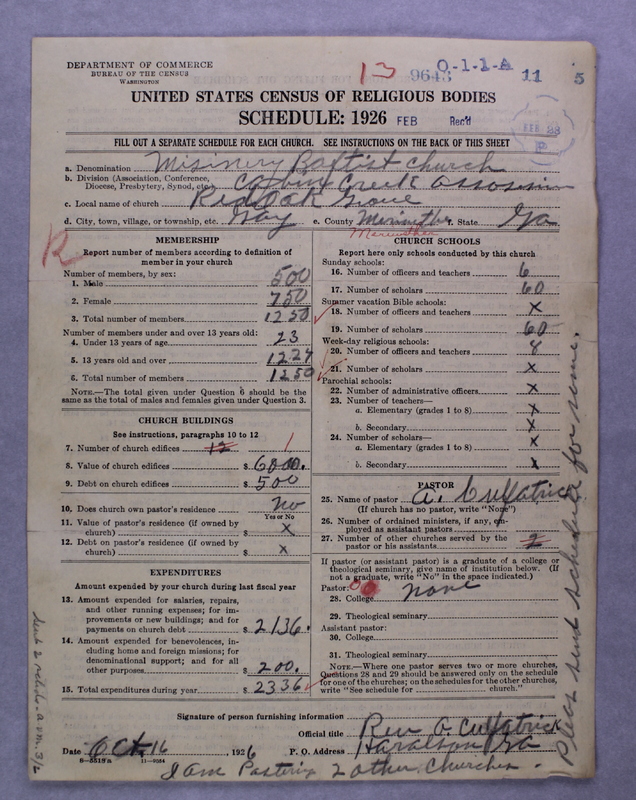 DEPARTMENT OF COMMERCE
BUREAU OF THE CENSUS
WASHINGTON
13 9648 0-1-1-A 11 5
UNITED STATES CENSUS OF RELIGIOUS BODIES
SCHEDULE: 1926 FEB Rec'd
FEB 23
FILL OUT A SEPARATE SCHEDULE FOR EACH CHURCH. SEE INSTRUCTIONS ON THE BACK OF THIS SHEET
a. Denomination Misinery Baptist church
b. Division (Association, Conference, Diocese, Presbytery, Synod, etc. Creek
c. Local name of church Red Oak Grove
d. City, town, village, or township, etc. Gay e. County f. State Ga
Meriwether
R
MEMBERSHIP
Report number of members according to definition of
member in your church
Number of members, by sex:
1. Male 500
2. Female 750
3. Total number of members 1250
Number of members under and over 13 years old:
4. Under 13 years of age 23
5. 13 years old and over 1227
6. Total number of members 1250
NOTE.—The total given under Question 6 should be the
same as the total of males and females given under Question 3.
CHURCH BUILDINGS
See instructions, paragraphs 10 to 12
7. Number of church edifices 12 1
8. Value of church edifices $ 6000.
9. Debt on church edifices $ 500
10. Does church own pastor's residence no
Yes or No
11. Value of pastor's residence (if owned by
church) $ x
12. Debt on pastor's residence (if owned by
church) $ x
EXPENDITURES
Amount expended by your church during last fiscal year
13. Amount expended for salaries, repairs,
and other running expenses; for im-
provements or new buildings; and for
payments on church debt $ 2136.
14. Amount expended for benevolences, in-
cluding home and foreign missions; for
denominational support; and for all
other purposes $ 200.
15. Total expenditures during year $ 2336
CHURCH SCHOOLS
Report here only schools conducted by this church
Sunday schools:
16. Number of officers and teachers 6
17. Number of scholars 60
Summer vacation Bible schools:
18. Number of officers and teachers x
19. Number of scholars 60
Week-day religious schools:
20. Number of officers and teachers 8
21. Number of scholars x
Parochial schools:
22. Number of administrative officers x
23. Number of teachers—
a. Elementary (grades 1 to 8) x
b. Secondary x
24. Number of scholars—
a. Elementary (grades 1 to 8) x
b. Secondary x
PASTOR
25. Name of pastor a. Culpatrick
(If church has no pastor, write "None")
26. Number of ordained ministers, if any, em-
ployed as assistant pastors
27. Number of other churches served by the
pastor or his assistants 2
If pastor (or assistant pastor) is a graduate of a college or
theological seminary, give name of institution below. (If
not a graduate, write "No" in the space indicated.)
Pastor:
28. College none
29. Theological seminary
Assistant pastor:
30. College
31. Theological seminary
NOTE.—Where one pastor serves two or more churches,
Questions 28 and 29 should be answered only on the schedule
for one of the churches; on the schedules for the other churches,
write "See schedule for church."
Signature of person furnishing information
Official title Rev. A. Culpatrick
Date Oct. 16, 1926 P. O. Address Haralson Ga
8—5518a 11—9084
I am Pastoring 2 other Churches.
Pleas send schedule for same.
Send 2 scheds.